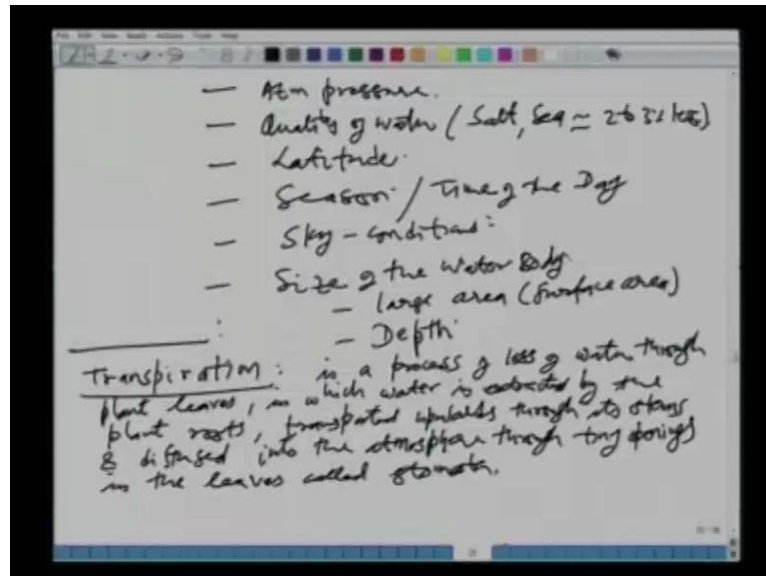 — Atm pressure.
— Quality of water (Salt, Sea ≃ 2 to 3% less)
— Latitude.
— Season / Time of the Day
— Sky-conditions:
— Size of the Water Body
— large area (surface area)
— Depth
Transpiration: is a process of loss of water through
plant leaves, in which water is extracted by the
plant roots, transported upwards through its stems
& diffused into the atmosphere through tiny openings
in the leaves called stomata.